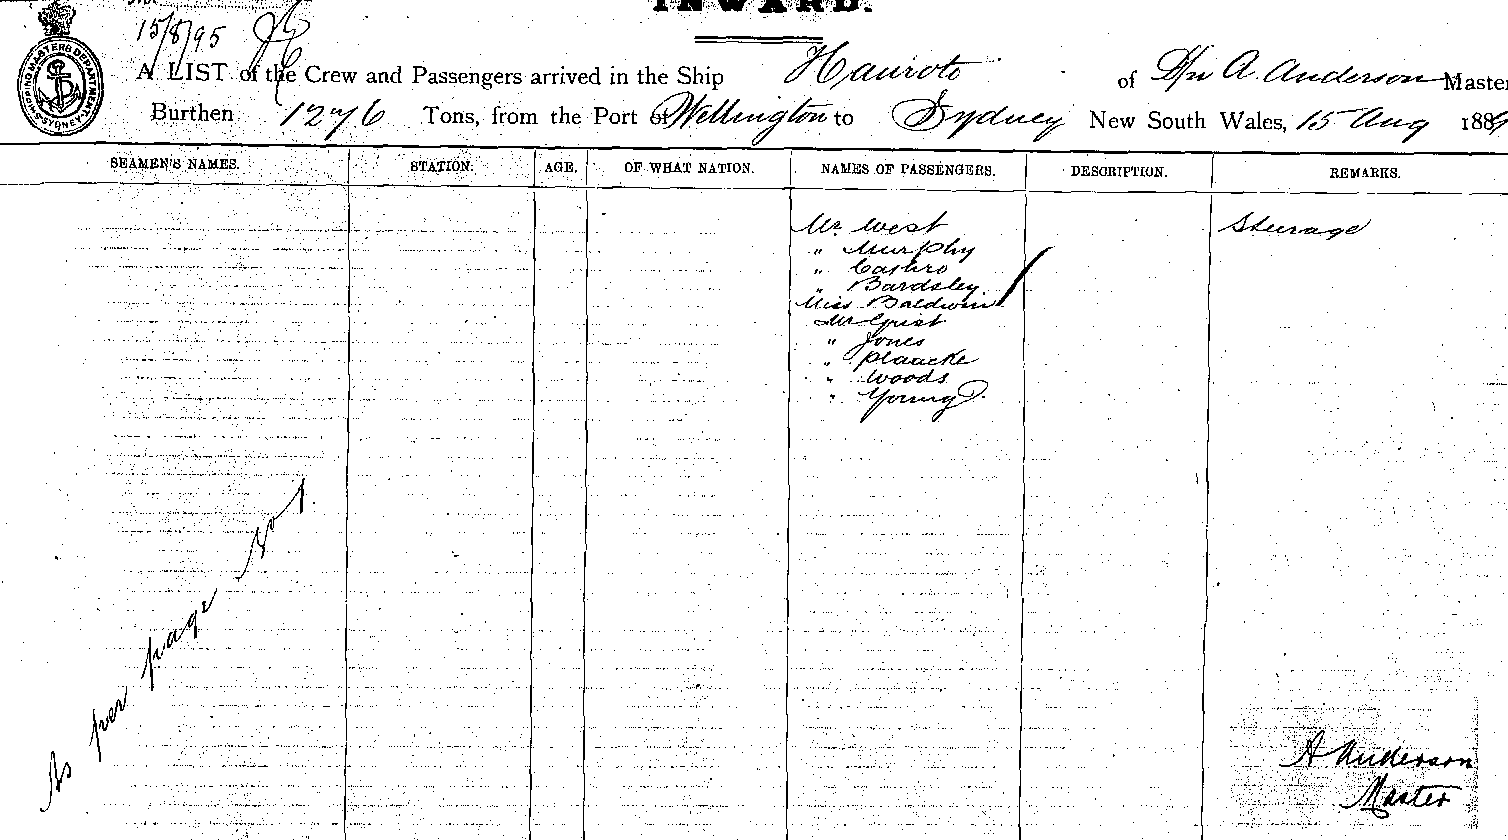 INWARD.
15/8/95
SHIPPING MASTERS DEPARTMENT SYDNEY
A LIST of the Crew and Passengers arrived in the Ship Hauroto of Dn A. Anderson Master
Burthen 1276 Tons, from the Port of Wellington to Sydney New South Wales, 15 Aug 188
SEAMEN'S NAMES. STATION. AGE. OF WHAT NATION. NAMES OF PASSENGERS. DESCRIPTION. REMARKS.
Mr West Steerage
" Murphy
"
" Bardsley
Miss Baldwin
Mr Grist
" Jones
" Plaacke
" Woods
" Young
As per page No 1.
A Anderson
Master